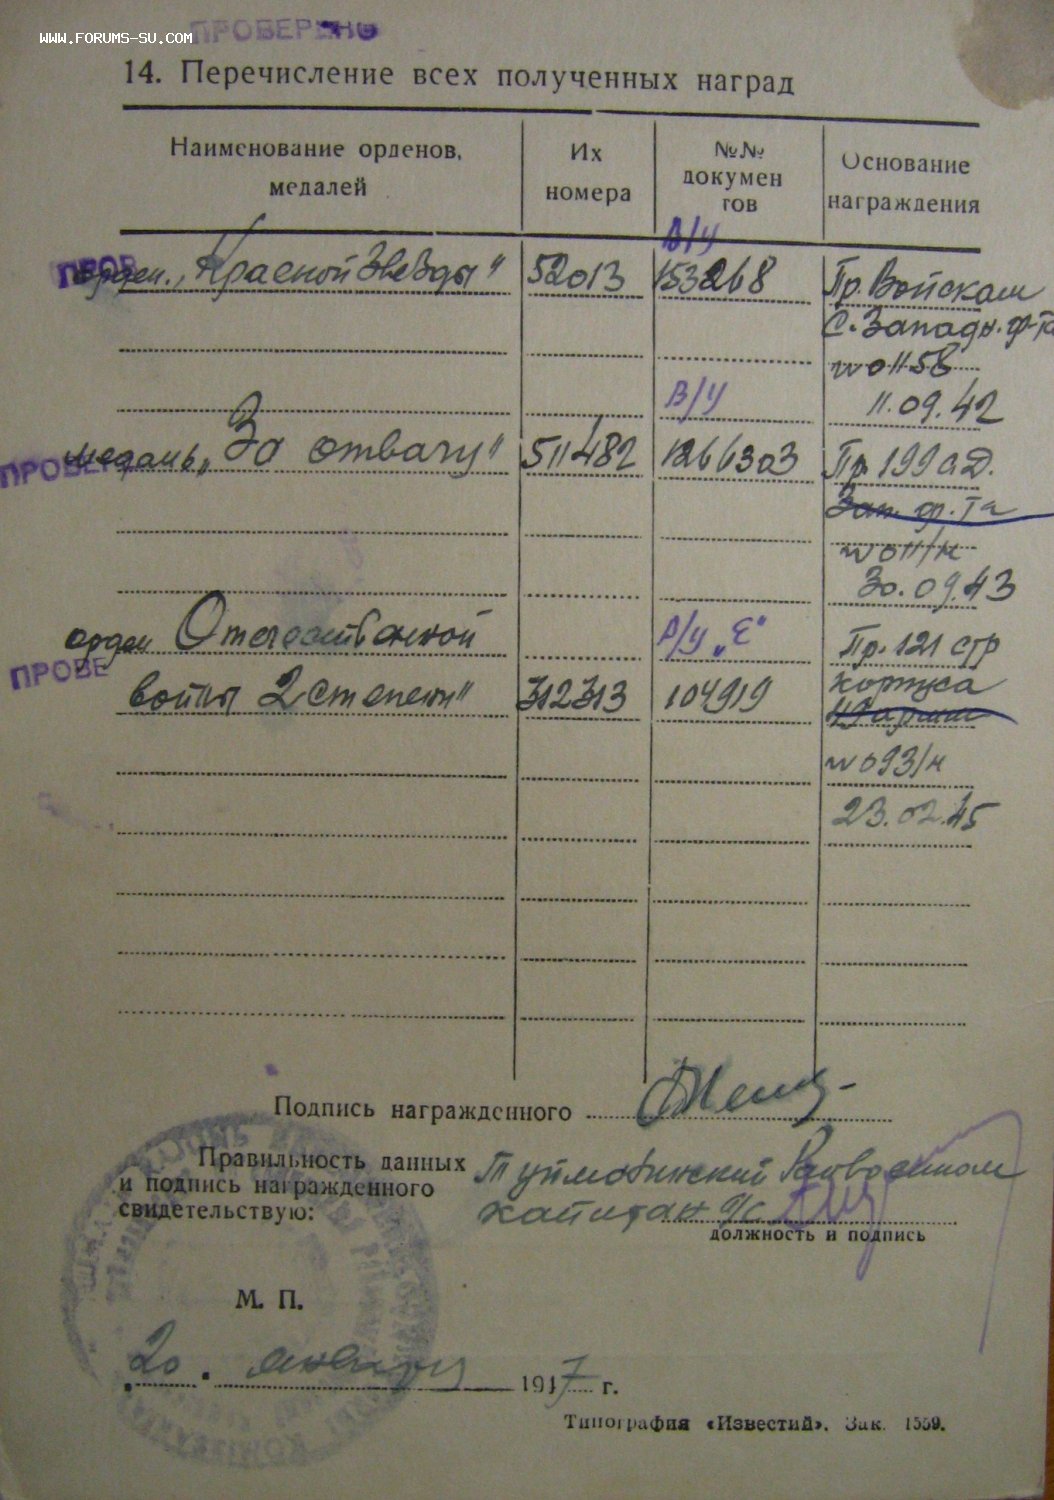 WWW.FORUMS-SU.COM
ПРОВЕРЕНО
14. Перечисление всех полученных наград
Наименование орденов, медалей
Их номера
№№ докумен тов
Основание награждения
В/у
ПРОВ
орден „Красной Звезды" 52013 153268 Пр. Войскам
С. Западн. ф-та
№ 01158
В/У 11.09.42
ПРОВЕР
медаль „За отвагу" 511482 1266303 Пр. 199 а д.
Зап. фр. та
№ 011/н
30.09.43
орден Отечественной В/У „Е" Пр. 121 стр
ПРОВЕ
войны 2 степени" 312313 104919 корпуса
49 армии
№ 093/н
23.02.45
Подпись награжденного
Правильность данных
и подпись награжденного
свидетельствую:
Туймазинский Райвоенком
капитан а/с
должность и подпись
М. П.
„20" января 1947 г.
Типография «Известий». Зак. 1559.